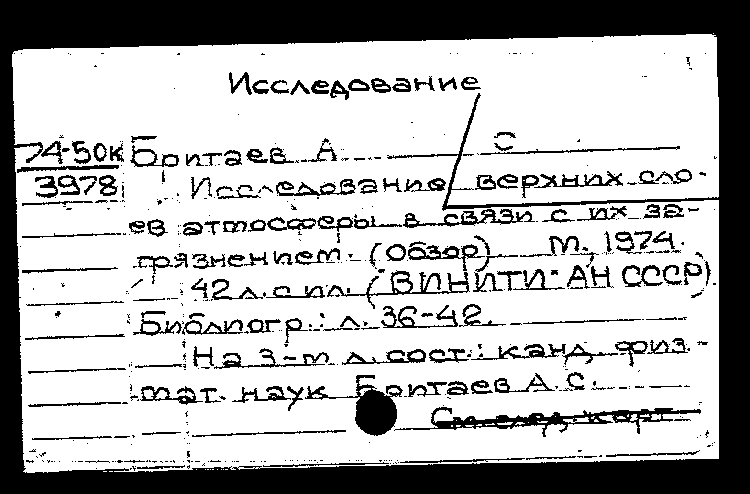 Исследование
74-50к Бритаев А С
3978 Исследование верхних сло-
ев атмосферы в связи с их за-
грязнением. (Обзор) М., 1974.
42 л. с ил. (ВИНИТИ АН СССР)
Библиогр.: л. 36-42.
На 3-м л. сост.: канд. физ.-
мат. наук Бритаев А.С.
См. след. карт.